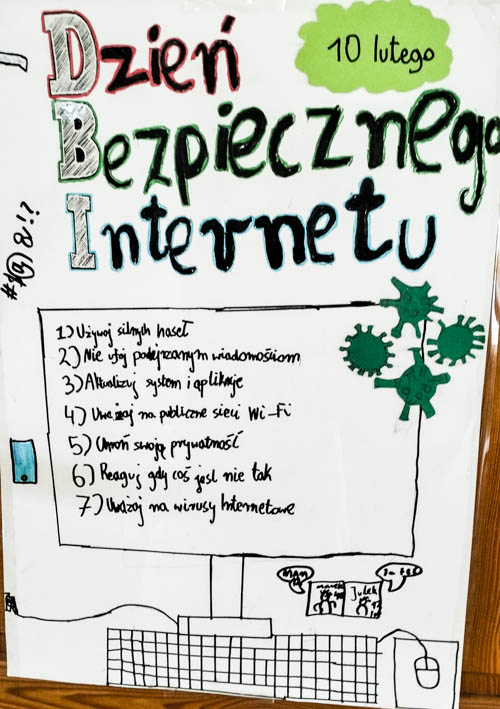 Dzień
10 lutego
Bezpiecznego
Internetu
#!@&!?
1) Używaj silnych haseł
2) Nie ufaj podejrzanym wiadomościom
3) Aktualizuj system i aplikacje
4) Uważaj na publiczne sieci Wi-Fi
5) Chroń swoją prywatność
6) Reaguj gdy coś jest nie tak
7) Uważaj na wirusy Internetowe
Julek